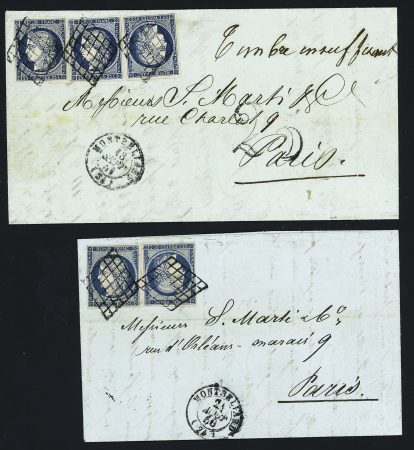 Timbre insuffisant
Messieurs S. Marti & Cie
rue Charlot 9
Paris.
MONTBELIARD
REPUB. FRANC.
Messieurs S. Marti & Co,
rue d'Orléans-marais 9
Paris.
MONTBELIARD